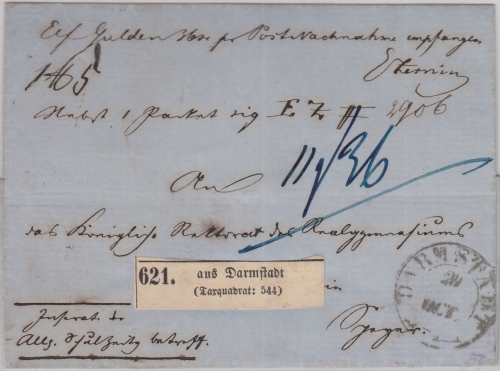 Elf Gulden 36xr pr Postnachnahme empfangen
165
Nebst 1 Packet sig E Z # 2906
An
11f/36
das Königliche Rektorat des Realgymnasiums
621. aus Darmstadt
(Tarquadrat: 544)
in
Speyer.
DARMSTADT
20
OCT.
Inserat der
Allg. Schulzeitg betreff.